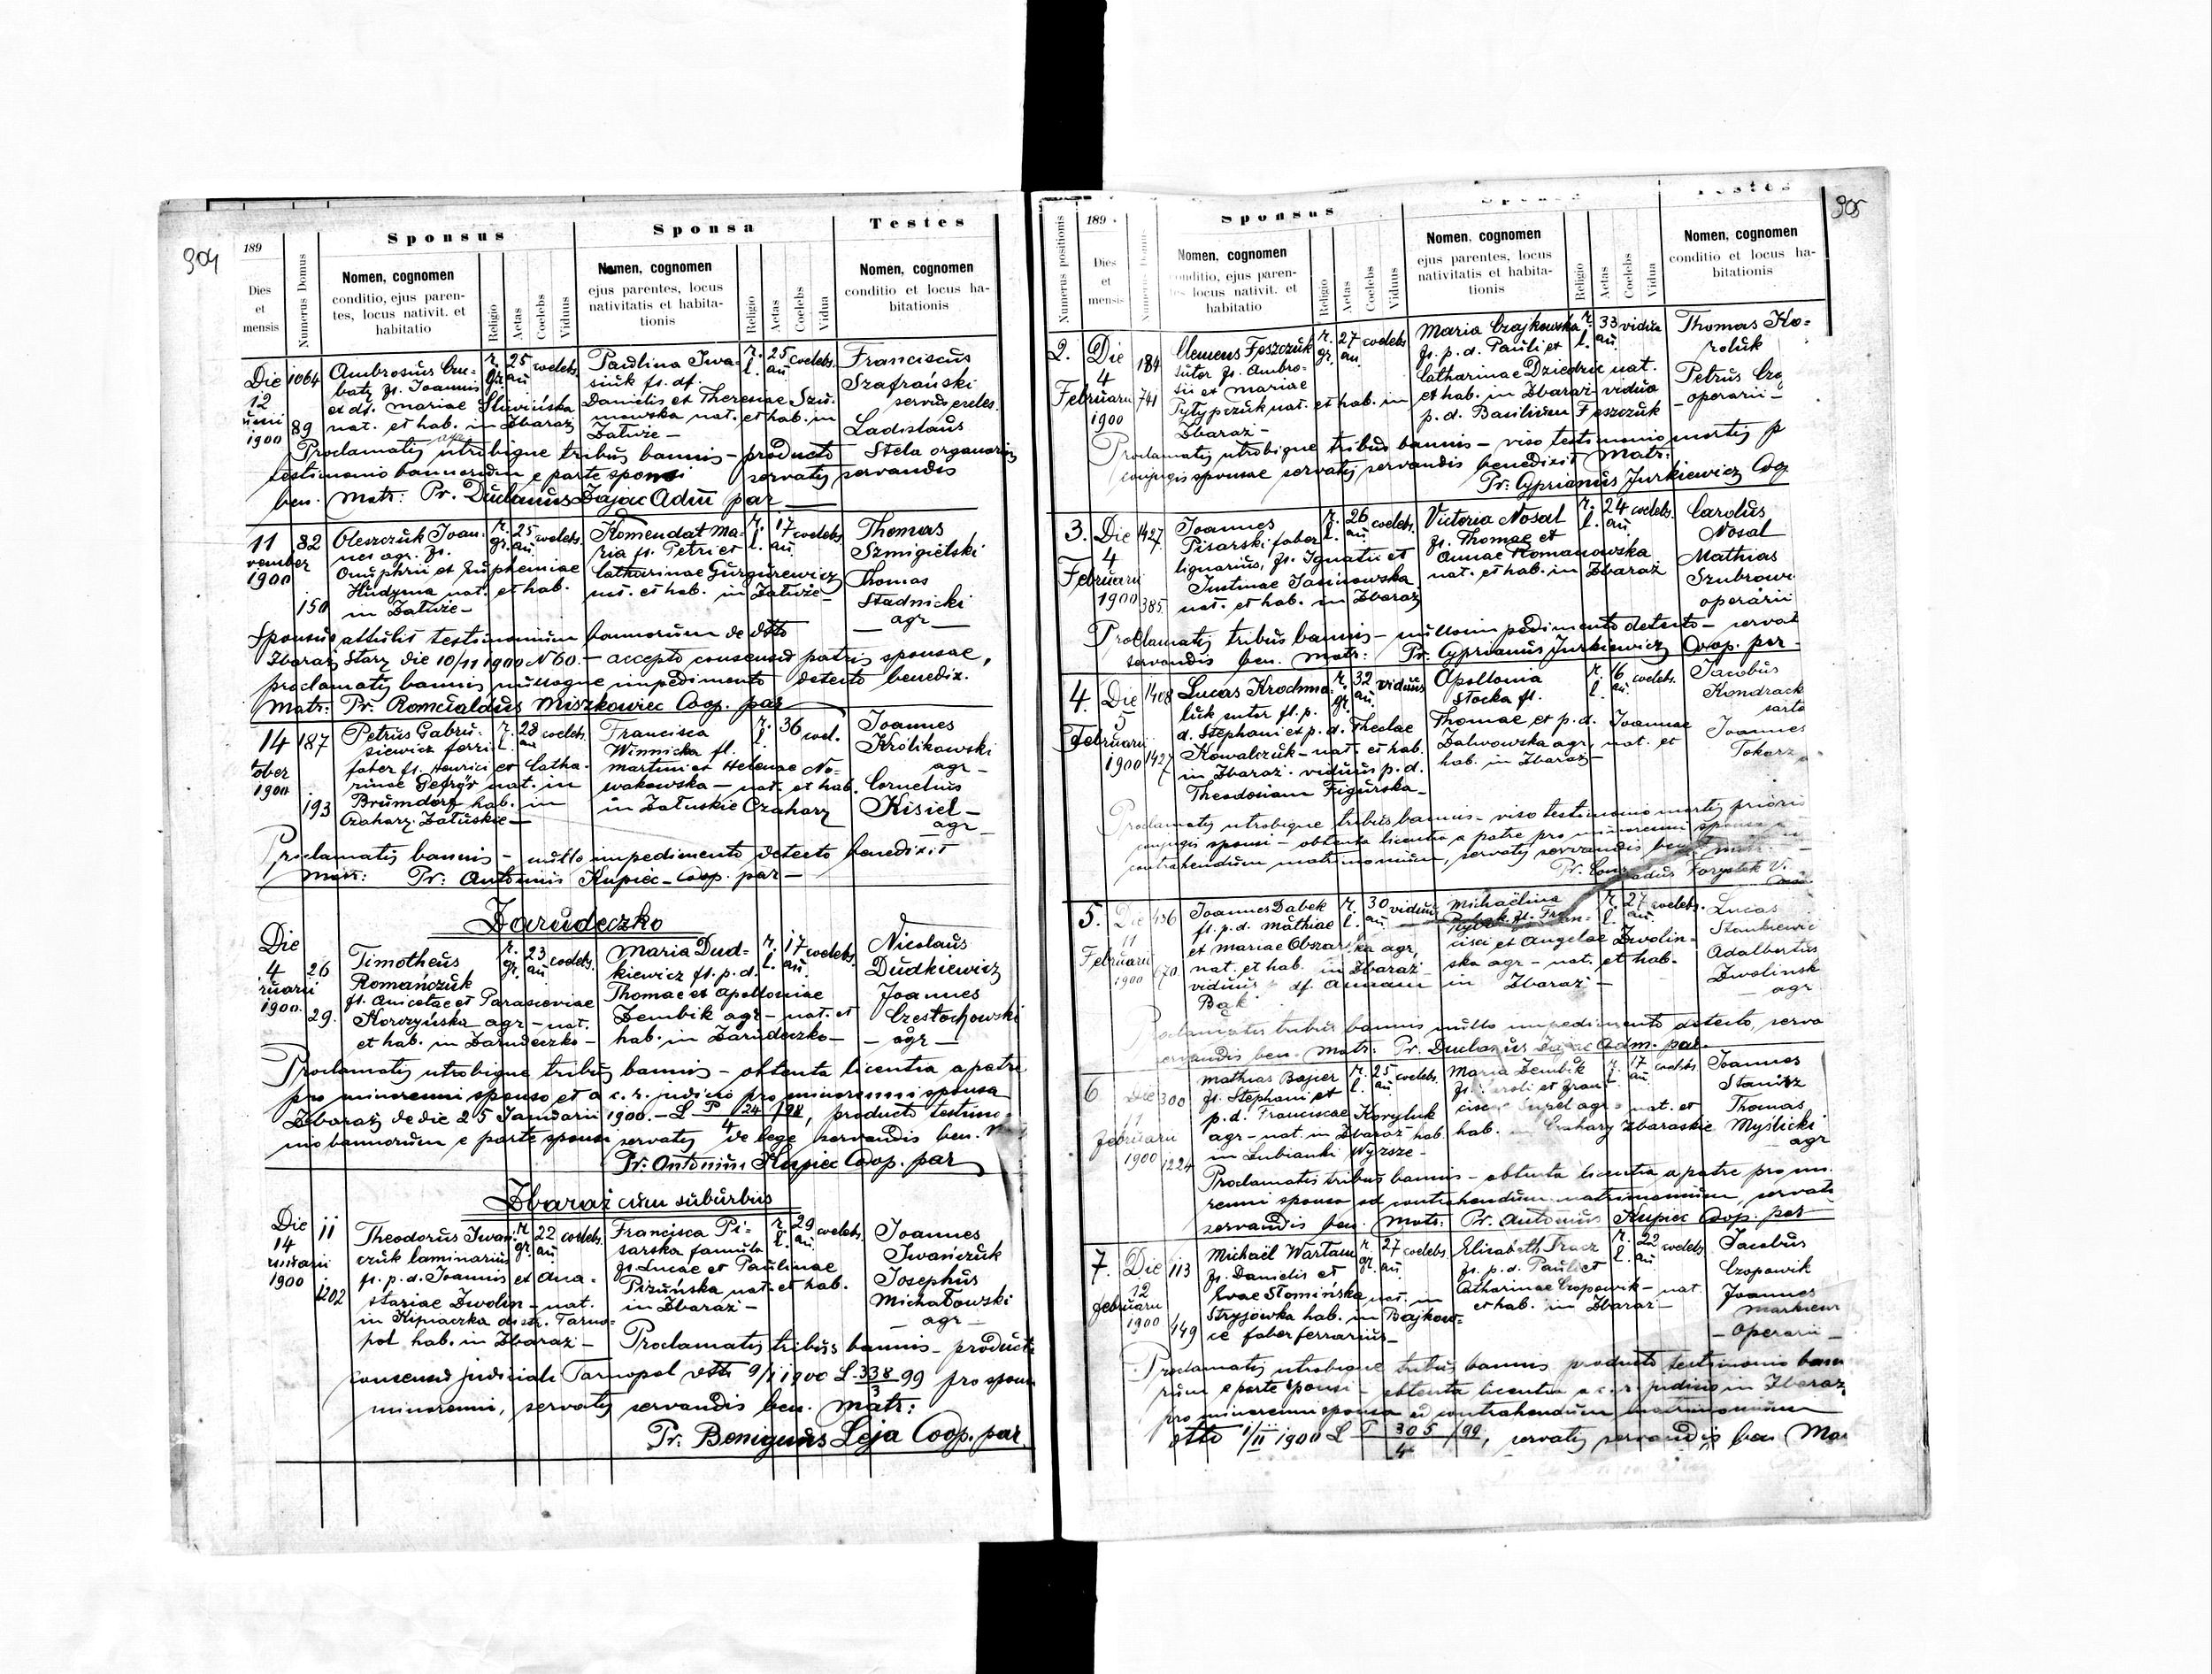 904
189
Sponsus
Sponsa
Testes
Dies et mensis
Numerus Domus
Nomen, cognomen
conditio, ejus paren-
tes, locus nativit. et
habitatio
Religio
Aetas
Coelebs
Viduus
Nomen, cognomen
ejus parentes, locus
nativitatis et habita-
tionis
Religio
Aetas
Coelebs
Vidua
Nomen, cognomen
conditio et locus ha-
bitationis
Die 12
1900
1064
89
Ambrosius
fs. Joannis
et df. Mariae Śliwińska
nat. et hab. in Zbaraż
r. gr.
25 an.
coelebs.
Paulina Iwa-
siuk fs. df.
Danielis et Theresiae Szu-
mowska nat. et hab. in
Załuże -
r. l.
25 an.
coelebs.
Franciscus
Szafrański
servus
Ladislaus
Stela organarius
Proclamatis utrobique tribus bannis - producto
testimonio bannorum e parte sponsi servatis servandis
ben. Matr: Pr. Duclanus Zając Adm par
11
vember
1900
82
150
Oleszczuk Joan-
nes agr. fs.
Onuphrii et Euphemiae
Hudyma nat. et hab.
in Załuże -
r. gr.
25 an.
coelebs.
Komendat Ma-
ria fs. Petri et
Catharinae Gurgurewicz
nat. et hab. in Załuże -
r. l.
17 an.
coelebs.
Thomas
Szmigielski
Thomas
Stadnicki
agr
Sponsus attulit testimonium bannorum de dtto
Zbaraż Stary die 10/11 1900 N 60. - accepto consensu patris sponsae,
proclamatis bannis nulloque impedimento detecto benedix.
Matr: Pr. Romualdus Miszkowiec Coop. par
14
tober
1900
187
193
Petrus Gabru-
siewicz ferri
faber fs. Henrici et Catha-
rinae nat. in
Brumdorf hab. in
Czahary Załuskie
r. l.
28 an
coelebs.
Francisca
Winnicka fl.
Martini et Helenae No-
wakowska - nat. et hab.
in Załuskie Czahary
r. l.
36
coel.
Joannes
Królikowski
agr -
Cornelius
Kisiel -
agr -
Proclamatis bannis - nullo impedimento detecto benedixit
Matr: Pr: Antonius Kupiec - Coop. par -
Zarudeczko
Die
4
ruarii
1900.
26
29.
Timotheus
Romańczuk
fl. Anicetae et Parasceviae
Korczyńska agr - nat.
et hab. in Zarudeczko -
r. gr.
23 an
coelebs.
Maria Dud-
kiewicz fl. p. d.
Thomae et Apolloniae
Zembik agr - nat. et
hab. in Zarudeczko -
r. l.
17 an.
coelebs.
Nicolaus
Dudkiewicz
Joannes
Częstochowski
- agr -
Proclamatis utrobique tribus bannis - obtenta licentia a patre
pro minorenni sponso et a c. r. judicio pro minorenni sponsa
Zbaraż de die 25 Januarii 1900. - L P 24/98, producto testimo-
4
nio bannorum e parte sponsi servatis de lege servandis ben. M
Pr: Antonius Kupiec Coop. par
Zbaraż cum suburbiis
Die
14
nuarii
1900
11
1202
Theodorus Iwań-
czuk laminarius
fs. p. d. Joannis et Ana-
stasiae Zwolin - nat.
in Kipiaczka distr. Tarno-
pol hab. in Zbaraż -
r. gr.
22 an
coelebs.
Francisca Pi-
sarska famula
fs. Lucae et Paulinae
Pizuńska nat. et hab.
in Zbaraż -
r. l.
29 an.
coelebs.
Joannes
Iwańczuk
Josephus
Michałowski
- agr -
Proclamatis tribus bannis - producto
consensu judiciali Tarnopol dtto 9/I 1900 L. 338 99 pro sponso
3
minorenni, servatis servandis ben. Matr:
Pr. Benignus Leja Coop. par.
905
Numerus positionis
189
Dies et mensis
Sponsus
Testes
Nomen, cognomen
conditio, ejus paren-
tes locus nativit. et
habitatio
Religio
Aetas
Coelebs
Viduus
Nomen, cognomen
ejus parentes, locus
nativitatis et habita-
tionis
Religio
Aetas
Coelebs
Vidua
Nomen, cognomen
conditio et locus ha-
bitationis
2.
Die
4
Februarii
1900
184
741
Clemens Feszczuk
sutor fs. Ambro-
sii et Mariae
Pytypczuk nat. et hab. in
Zbaraż -
r. gr.
27 an
coelebs
Maria Czajkowska
fs. p. d. Pauli et
Catharinae Dziedzic nat.
et hab. in Zbaraż vidua
p. d. Basilium Feszczuk
r. l.
33 an.
vidua
Thomas Ko-
roluk
Petrus
- operarii -
Proclamatis utrobique tribus bannis - viso testimonio mortis p
conjugis sponsae servatis servandis benedixit Matr:
Pr: Cyprianus Jurkiewicz Coop
3.
Die
4
Februarii
1900
1427
385
Joannes
Pisarski faber
lignarius, fs. Ignatii et
Justinae Jasinowska
nat. et hab. in Zbaraż
r. l.
26 an
coelebs.
Victoria Nosal
fs. Thomae et
Annae Romanowska
nat. et hab. in Zbaraż
r. l.
24 an.
coelebs.
Carolus
Nosal
Mathias
Szubrowi
operarii
Proclamatis tribus bannis - nullo impedimento detecto - servat
servandis ben. Matr: Pr. Cyprianus Jurkiewicz Coop. par -
4.
Die
5
Februarii
1900
1408
1427
Lucas Krochma-
luk sutor fl. p.
d. Stephani et p. d. Theclae
Kowalczuk - nat. et hab.
in Zbaraż. viduus p. d.
Theodosiam Figurska -
r. gr.
32 an
viduus
Apollonia
Stocka fl.
Thomae et p. d. Joannae
Zalwowska agr, nat. et
hab. in Zbaraż -
r. l.
16 an.
coelebs.
Jacobus
Kondrack
sarto
Joannes
Tokarz
Proclamatis utrobique tribus bannis - viso testimonio mortis prioris
conjugis sponsi - obtenta licentia a patre pro minorenni sponsa a
contrahendum matrimonium, servatis servandis ben. Matr:
Pr. Conradus Forystek V.
5.
Die
11
Februarii
1900
436
670
Joannes Dabek
fl. p. d. Mathiae
et Mariae Obszarska agr,
nat. et hab. in Zbaraż -
viduus p. df. Annam
Bąk
r. l.
30 an
viduus
Michaëlina
Rybak fs. Fran-
cisci et Angelae Zwolin-
ska agr - nat. et hab.
in Zbaraż -
r. l.
27 an.
coelebs.
Lucas
Stankiewic
Adalbertus
Zwolinsk
- agr
Proclamatis tribus bannis nullo impedimento detecto, serva
servandis ben. Matr: Pr. Duclanus Zając Adm. par.
6
Die
11
Februarii
1900
300
1224
Mathias Bajier
fs. Stephani et
p. d. Franciscae Koryluk
agr - nat. in Zbaraż hab.
in Lubianki Wyższe -
r. l.
25 an
coelebs.
Maria Zembik
fs. Caroli et Fran-
ciscae Supel agr nat. et
hab. in Czahary Zbaraskie
r. l.
17 an.
coelebs
Joannes
Stanisz
Thomas
Myślicki
agr
Proclamatis tribus bannis - obtenta licentia a patre pro mi-
norenni sponsa ad contrahendum matrimonium, servatis
servandis ben. Matr: Pr. Antonius Kupiec Coop. par
7.
Die
12
Februarii
1900
113
149
Michaël Wartam
fs. Danielis et
Evae Słomińska nat. in
Stryjówka hab. in Bajkow-
ce faber ferrarius -
r. gr.
27 an.
coelebs.
Elisabeth Tracz
fs. p. d. Pauli et
Catharinae Czopowik - nat
et hab. in Zbaraż -
r. l.
22 an
coelebs
Jacobus
Czopowik
Joannes
- Operarii -
Proclamatis utrobique tribus bannis producto testimonio bann
rum e parte sponsi - obtenta licentia a c. r. judicio in Zbaraż
pro minorenni sponsa ad contrahendum matrimonium
dtto 1/II 1900 L P 305/99, servatis servandis ben Ma
4